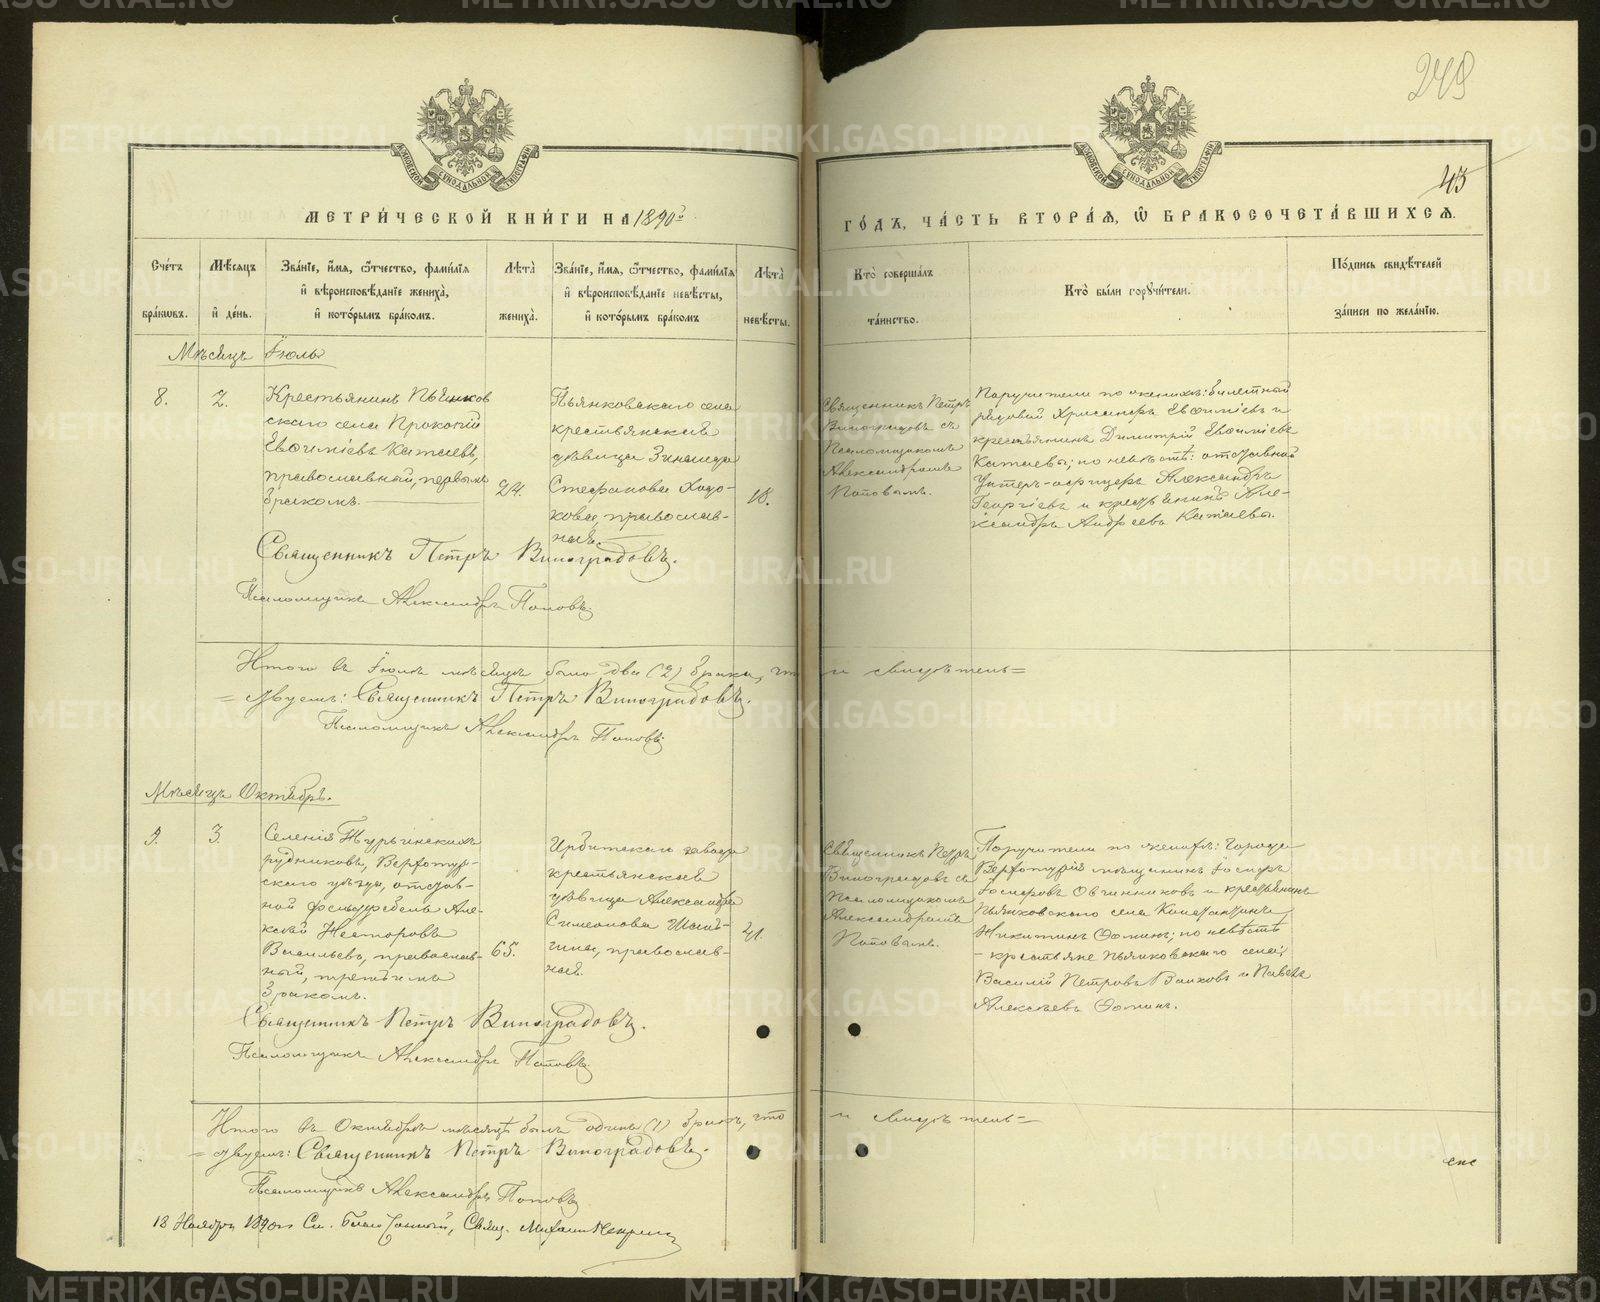 249
43
МЕТРИ́ЧЕСКОЙ КНИ́ГИ НА 1890й
ГО́ДЪ, ЧА́СТЬ ВТОРА́Я, Ѡ БРАКОСОЧЕТА́ВШИХСЯ.
Сче́тъ бра́кѡвъ.
Мѣ́сяцъ и де́нь.
Зва́нїе, и́мя, ѻ́тчество, фами́лїя
и вѣроисповѣ́данїе жениха̀,
и кото́рымъ бра́комъ.
Лѣта̀ жениха̀.
Зва́нїе, и́мя, ѻ́тчество, фами́лїя
и вѣроисповѣ́данїе невѣ́сты,
и кото́рымъ бра́комъ
Лѣта̀ невѣ́сты.
Кто̀ соверша́лъ
та́инство.
Кто̀ бы́ли поручи́тели.
По́дпись свидѣ́телей
за́писи по жела́нїю.
Мѣсяцъ Іюль
8.
2.
Крестьянинъ Пьянков
скаго села Прокопій
Евѳиміевъ Катаевъ,
православный, первымъ
бракомъ.
24.
Пьянковскаго села
крестьянская
дѣвица Зинаида
Стефанова
православ-
ная.
18.
Священникъ Петръ
Виноградовъ съ
Псаломщикомъ
Александромъ
Поповымъ.
Поручители по женихѣ: билетный
рядовой Хрисанфъ Евѳиміевъ и
крестьянинъ Димитрій Евѳиміевъ
Катаевы; по невѣстѣ: отставной
Унтеръ-офицеръ Александръ
Георгіевъ и крестьянинъ Але-
ксандръ Андреевъ Катаевы.
Священникъ Петръ Виноградовъ.
Псаломщикъ Александръ Поповъ.
Итого въ Іюлѣ мѣсяцѣ было два (2) брака, что и свидѣтель=
=ствуемъ: Священникъ Петръ Виноградовъ.
Псаломщикъ Александръ Поповъ.
Мѣсяцъ Октябрь.
9.
3.
Селенія Турьинскихъ
рудниковъ, Верхотур-
скаго уѣзда, отстав-
ной фельдфебель Але-
ксѣй Несторовъ
Васильевъ, православ-
ный, третьимъ
бракомъ.
65.
Ирбитскаго завода
крестьянская
дѣвица Александра
Симеонова
православ-
ная.
41.
Священникъ Петръ
Виноградовъ съ
Псаломщикомъ
Александромъ
Поповымъ.
Поручители по женихѣ: города
Верхотурья мѣщанинъ Іосифъ
Іосифовъ Овчинниковъ и крестьянинъ
Пьянковскаго села Константинъ
Никитинъ Ѳоминъ; по невѣстѣ
- крестьяне Пьянковскаго села:
Василій Петровъ и Павелъ
Алексѣевъ Ѳоминъ.
Священникъ Петръ Виноградовъ.
Псаломщикъ Александръ Поповъ.
Итого въ Октябрѣ мѣсяцѣ былъ одинъ (1) бракъ, что и свидѣтель=
=ствуемъ: Священникъ Петръ Виноградовъ.
Псаломщикъ Александръ Поповъ
18 Ноября 1890 г. См. Благочинный, Свящ. Михаилъ
METRIKI.GASO-URAL.RU